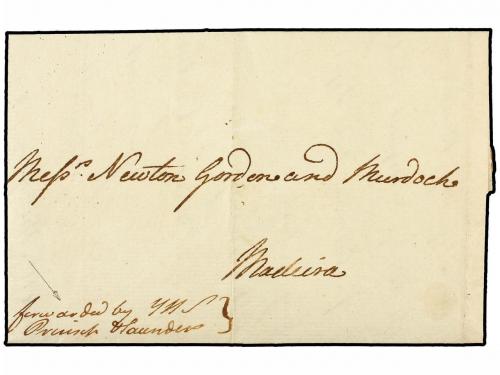 Messrs. Newton Gordon and Murdoch
Madeira
forwarded by YHS
& Saunders